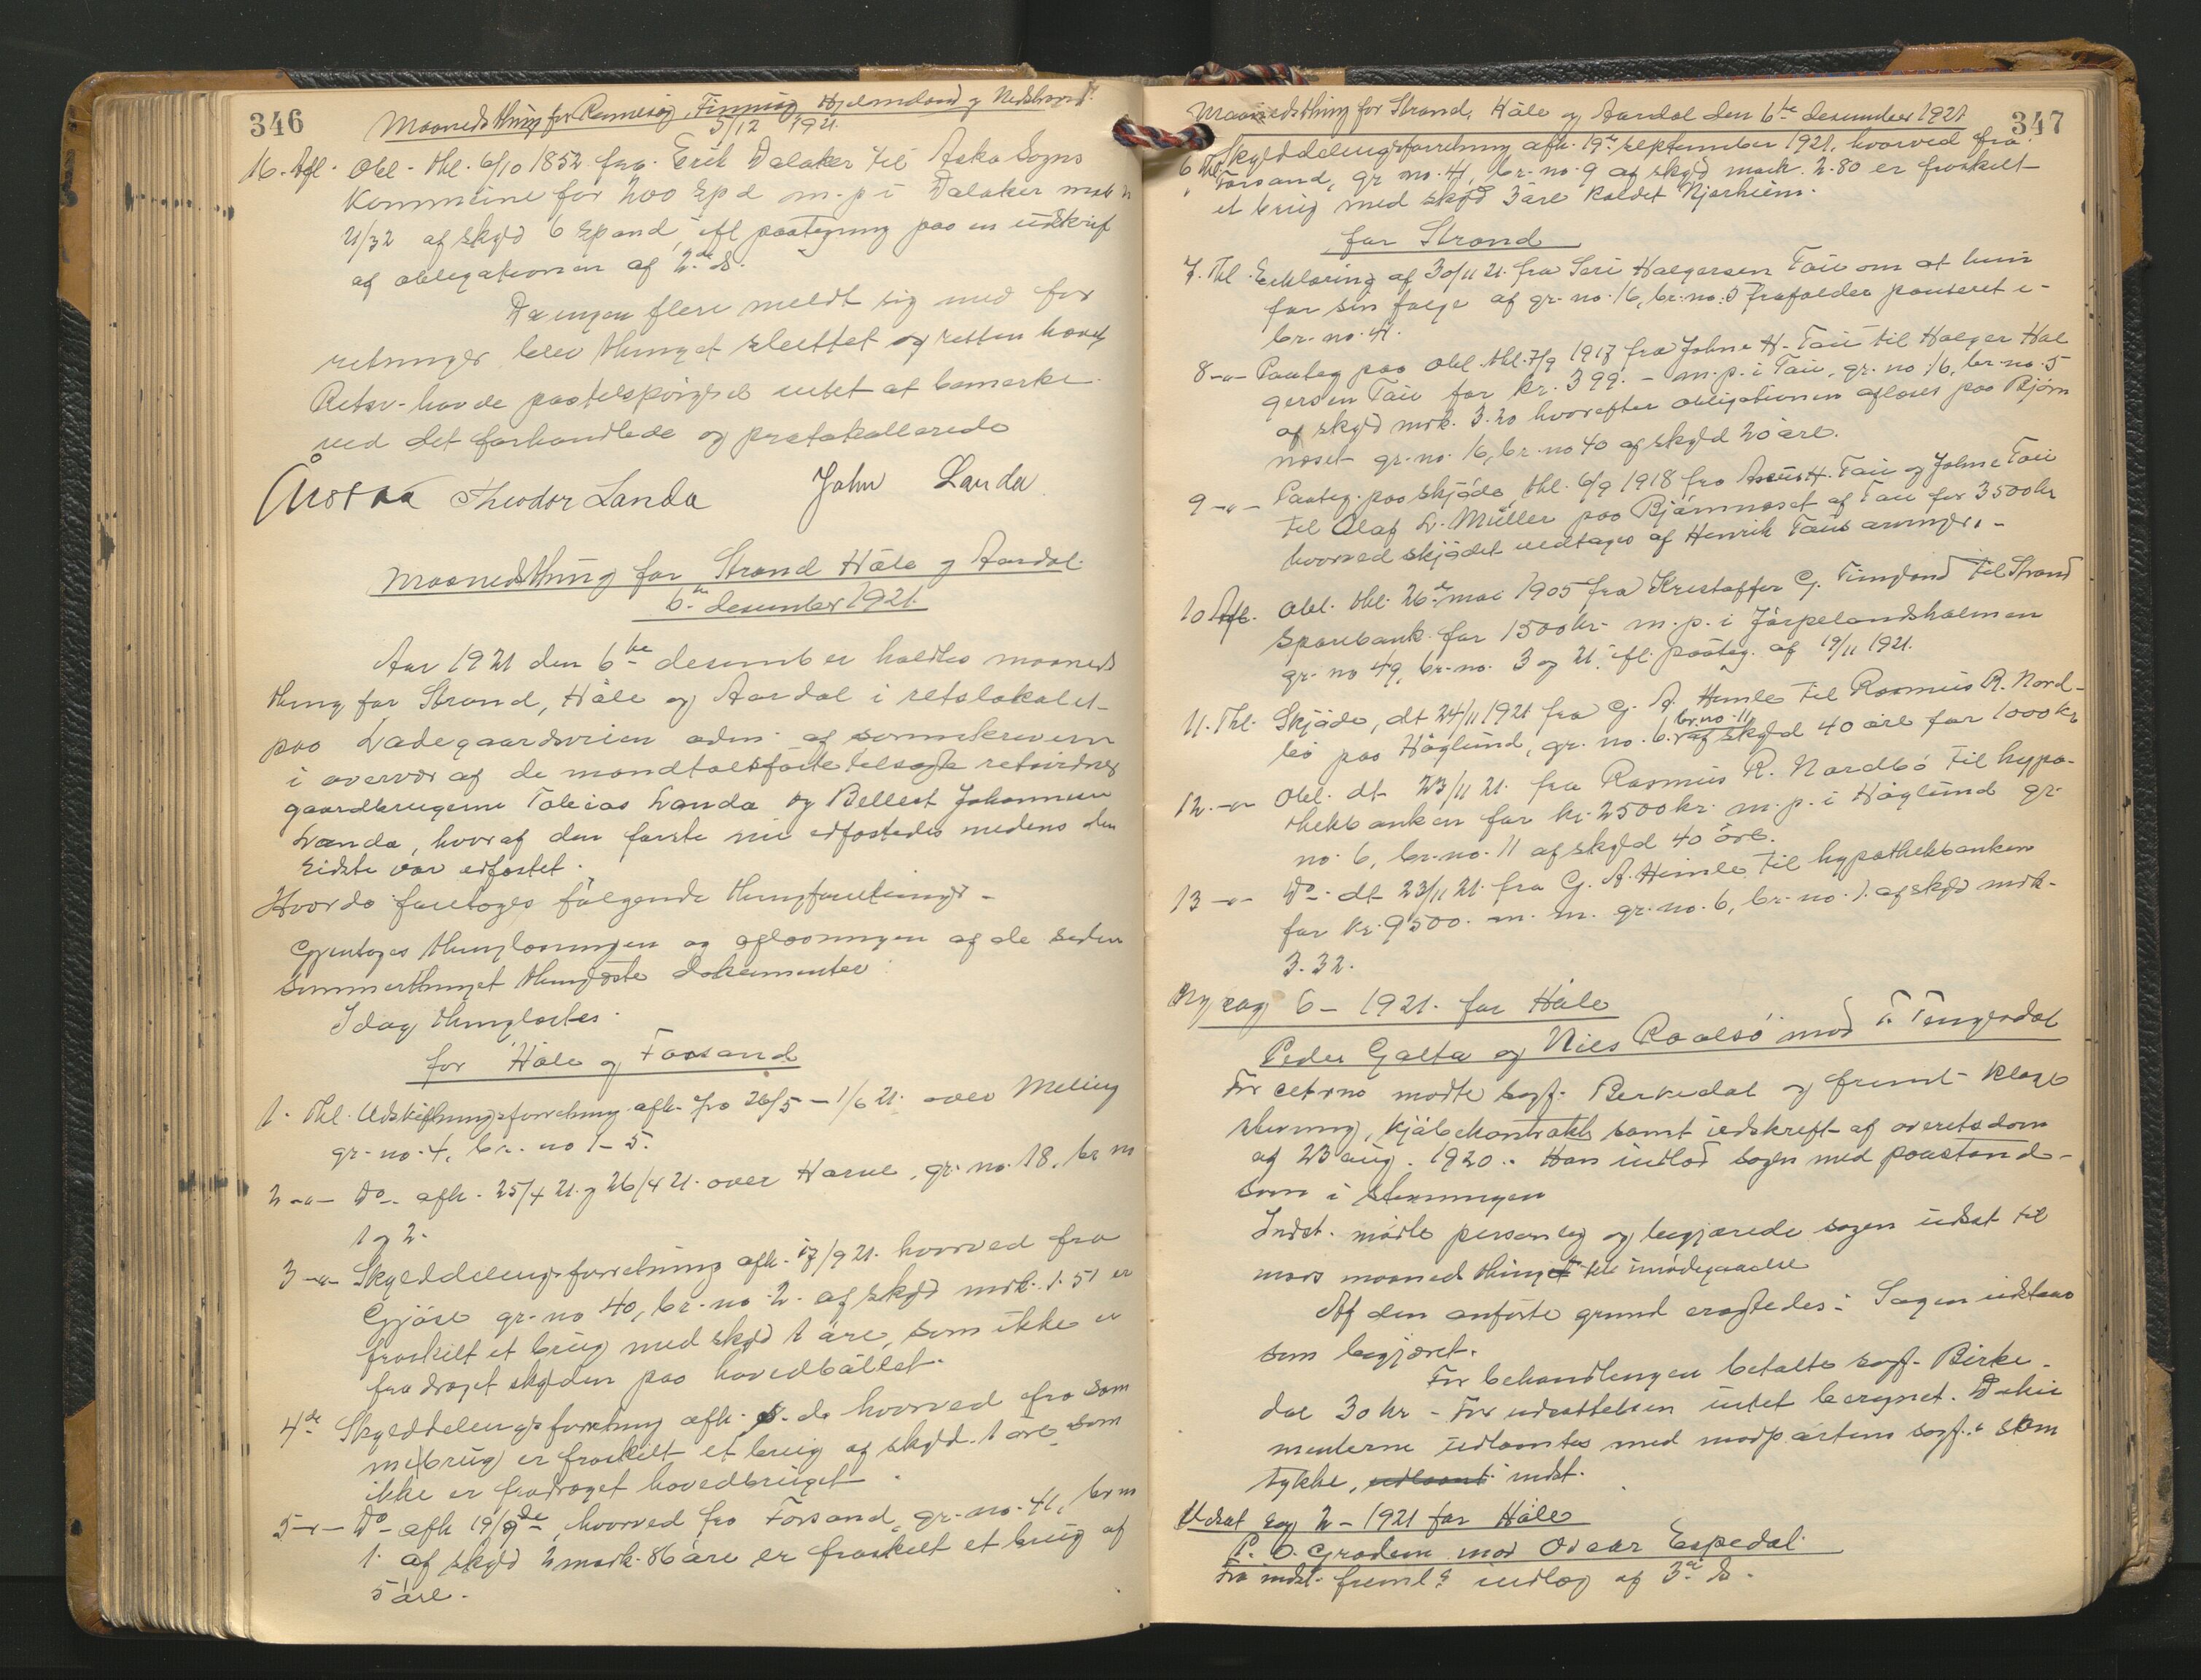 346
Maanedsthing for Rennesø, Finnø, Hjelmeland og Nedstrand
5/12 1921.
16. Afl. Obl. thl. 6/10 1852 fra Erik Dalaker til Aska Sogns
Kommune for 200 Spd m. p i Dalaker
21/32 af skyld 6 Spand, ifl paategning paa en udskrift
af obligationen af 2. ds.
Da ingen flere meldt sig med for
retninger blev thinget sluttet og retten hævet
Retsv. havde paa tilspørgsel intet at bemærke
ved det forhandlede og protokollerede
Theodor Landa John Landa
Maanedsthing for Strand Høle og Aardal
6te desember 1921.
Aar 1921 den 6te desember holdtes maaneds
thing for Strand, Høle og Aardal i retslokalet
paa Ladegaardsveien adm. af sorenskriveren
i overvær af de mandtalsførte tilsagte retsvidner
gaardbrugerne Tobias Landa og Bellest Johannesen
Landa, hvoraf den første nu edfæstedes medens den
sidste var edfæstet.
Hvorda foretoges følgende thingforretninger -
Gjentoges thinglæsningen og aflæsningen af de siden
sommerthinget thinglæste dokumenter
Idag thinglæstes.
for Høle og Forsand
1. Thl. Udskiftningsforretning afh. fra 26/5 - 1/6 21. over Meling
gr. no. 4, br. no 1-5.
2 -"- Do. afh. 25/4 21. og 26/4 21. over Harve, gr. no. 18, br no
1 og 2.
3 -"- Skylddelingsforretning afh. 17/9 21. hvorved fra
Gjøse gr. no 40, br. no. 2. af skyld mrk. 1.51 er
fraskilt et brug med skyld 1 øre, som ikke er
fradraget skylden paa hovedbøllet.
4de Skylddelingsforretning afh. s. d. hvorved fra sam
me brug er fraskilt et brug af skyld 1 øre som
ikke er fradraget hovedbruget.
5 -"- Do afh 19/9 de, hvorved fra Forsand, gr. no. 41, br no
1. af skyld 2 mark 86 øre er fraskilt et brug af
5 øre.
Maanedsthing for Strand, Høle og Aardal den 6te desember 1921
347
6 Thl. Skylddelingsforretning afh. 19de september 1921, hvorved fra
Forsand, gr no. 41, br. no. 9 af skyld mark. 2.80 er fraskilt
et brug med skyld 3 øre kaldet Njarheim.
for Strand
7. Thl. Erklæring af 30/11 21. fra Seri Halgersen Tau om at hun
for sin følge af gr. no. 16, br. no. 5 frafalder panteret i
br. no. 41.
8 -"- Paateg paa obl. thl. 7/9 1917 fra Johne H. Tau til Halger Hal
gersen Tau for kr. 399. - m. p. i Tau, gr. no 16, br. no. 5
af skyld mrk. 3.20 hvorefter obligationen aflæses paa Bjørn
næset gr. no. 16, br. no 40 af skyld 20 øre.
9 -"- Paateg. paa skjøde thl. 6/9 1918 fra H. Tau og Johne Tau
til Olaf L. Müller paa Bjørnnæset af Tau for 3500 kr
hvorved skjødet vedtages af Henrik Taus arvinger. -
10 Afl. Obl. thl. 26de mai 1905 fra Kristoffer G. Fimland til Strand
sparebank for 1500 kr. m. p. i Jørpelandsholmen
gr. no 49, br. no. 3 og 21. ifl. paateg. af 19/11 1921.
11. Thl. Skjøde, dt 24/11 1921 fra G. A. Himle til Rasmus R. Nord-
bø paa Høglund, gr. no. 6. br. no. 11 af skyld 40 øre for 1000 kr
12. -"- Obl. dt 23/11 21. fra Rasmus R. Nordbø til hypo-
thekbanken for kr. 2500 kr. m. p. i Høglund gr.
no. 6, br. no. 11 af skyld 40 øre.
13 -"- Do. dt 23/11 21. fra G. A. Himle til hypothekbanken
for kr. 9500. m. m. gr. no. 6, br. no. 1. af skyld mrk.
3.32.
Ny sag 6 - 1921. for Høle
Peder Galta og Nils Raalsø mod T. Tengesdal
For citrne mødte sagf. Berkedal og freml. klage
stevning, kjøbekontrakt samt udskrift af overetsdom
af 23 aug. 1920. Han indlod sagen med paastand
som i stevningen
Indst. mødte personlig og begjærede sagen udsat til
mars maanedsthinget til imødegaaelse
Af den anførte grund eragtedes: Sagen udstaar
som begjæret.
For behandlingen betalte sagf. Birke-
dal 30 kr - For udsættelsen intet beregnet. Doku
menterne udlaantes med modpartens sagf.s sam
tykke, udlaant indst.
Udsat sag 2 - 1921 for Høle
P. O. Gradem mod Oscar Espedal
Fra indst. fremls indlæg af 3de ds.